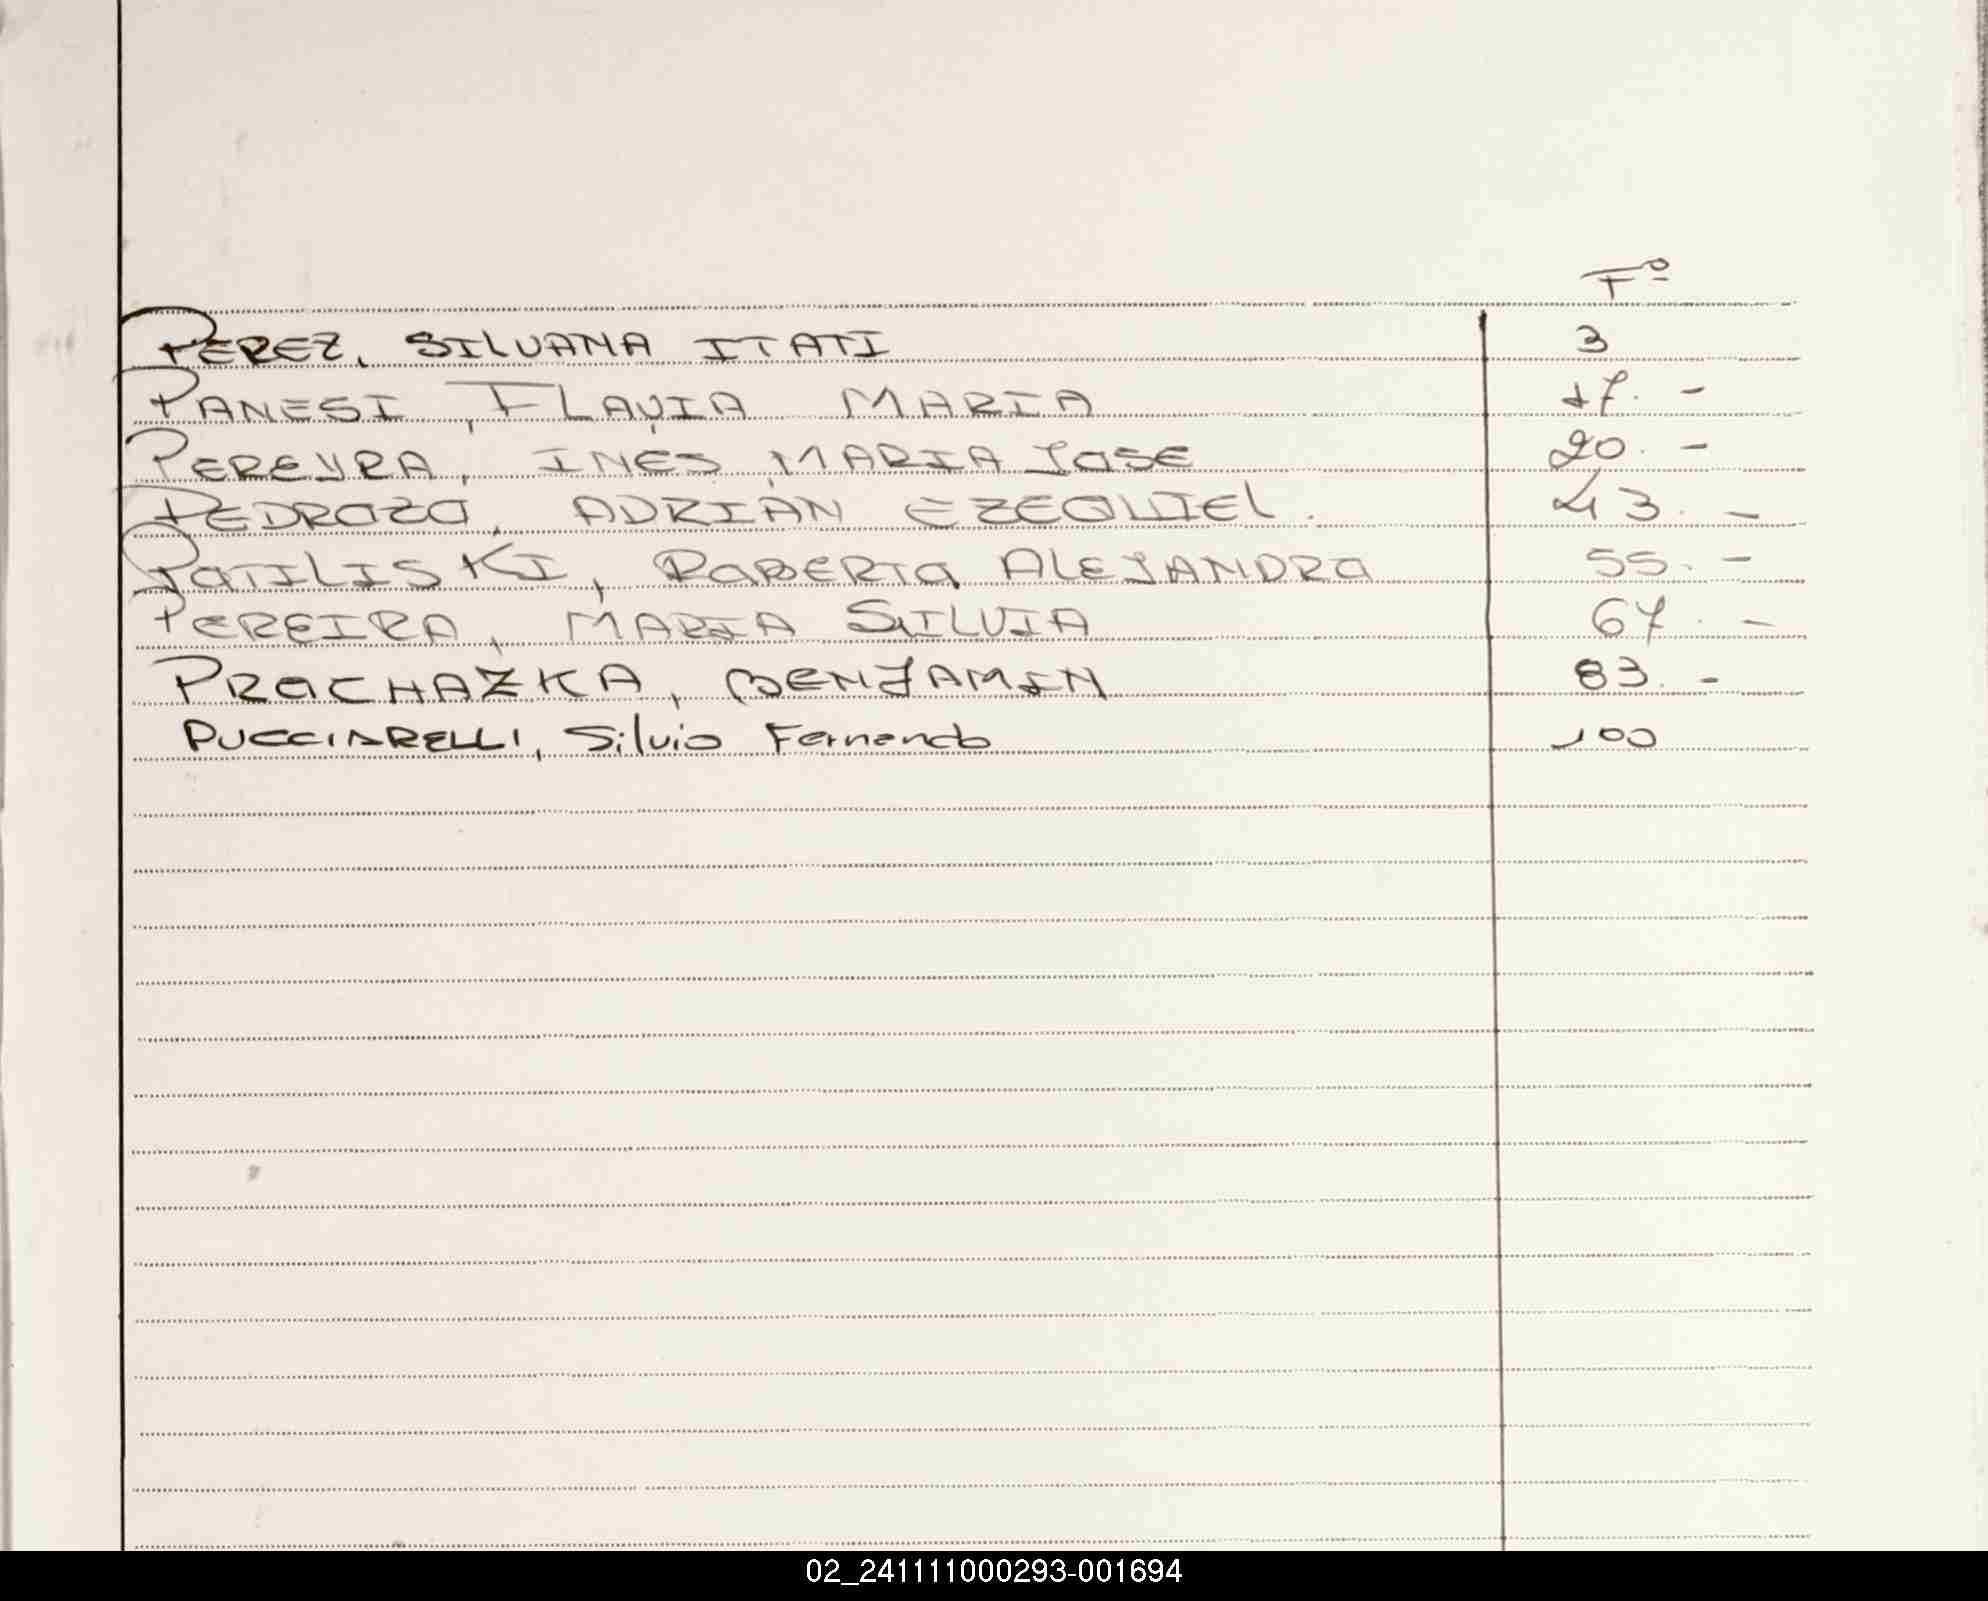 Fº
PEREZ, SILVANA ITATI 3
PANESI, FLAVIA MARIA 17. -
PEREYRA, INES MARIA JOSE 20. -
PEDROZO, ADRIÁN EZEQUIEL. 43. -
POTILISKI, ROBERTO ALEJANDRO 55. -
PEREIRA, MARIA SILVIA 67. -
PROCHAZKA, BENJAMIN 83. -
PUCCIARELLI, Silvio Fernando 100
02_241111000293-001694